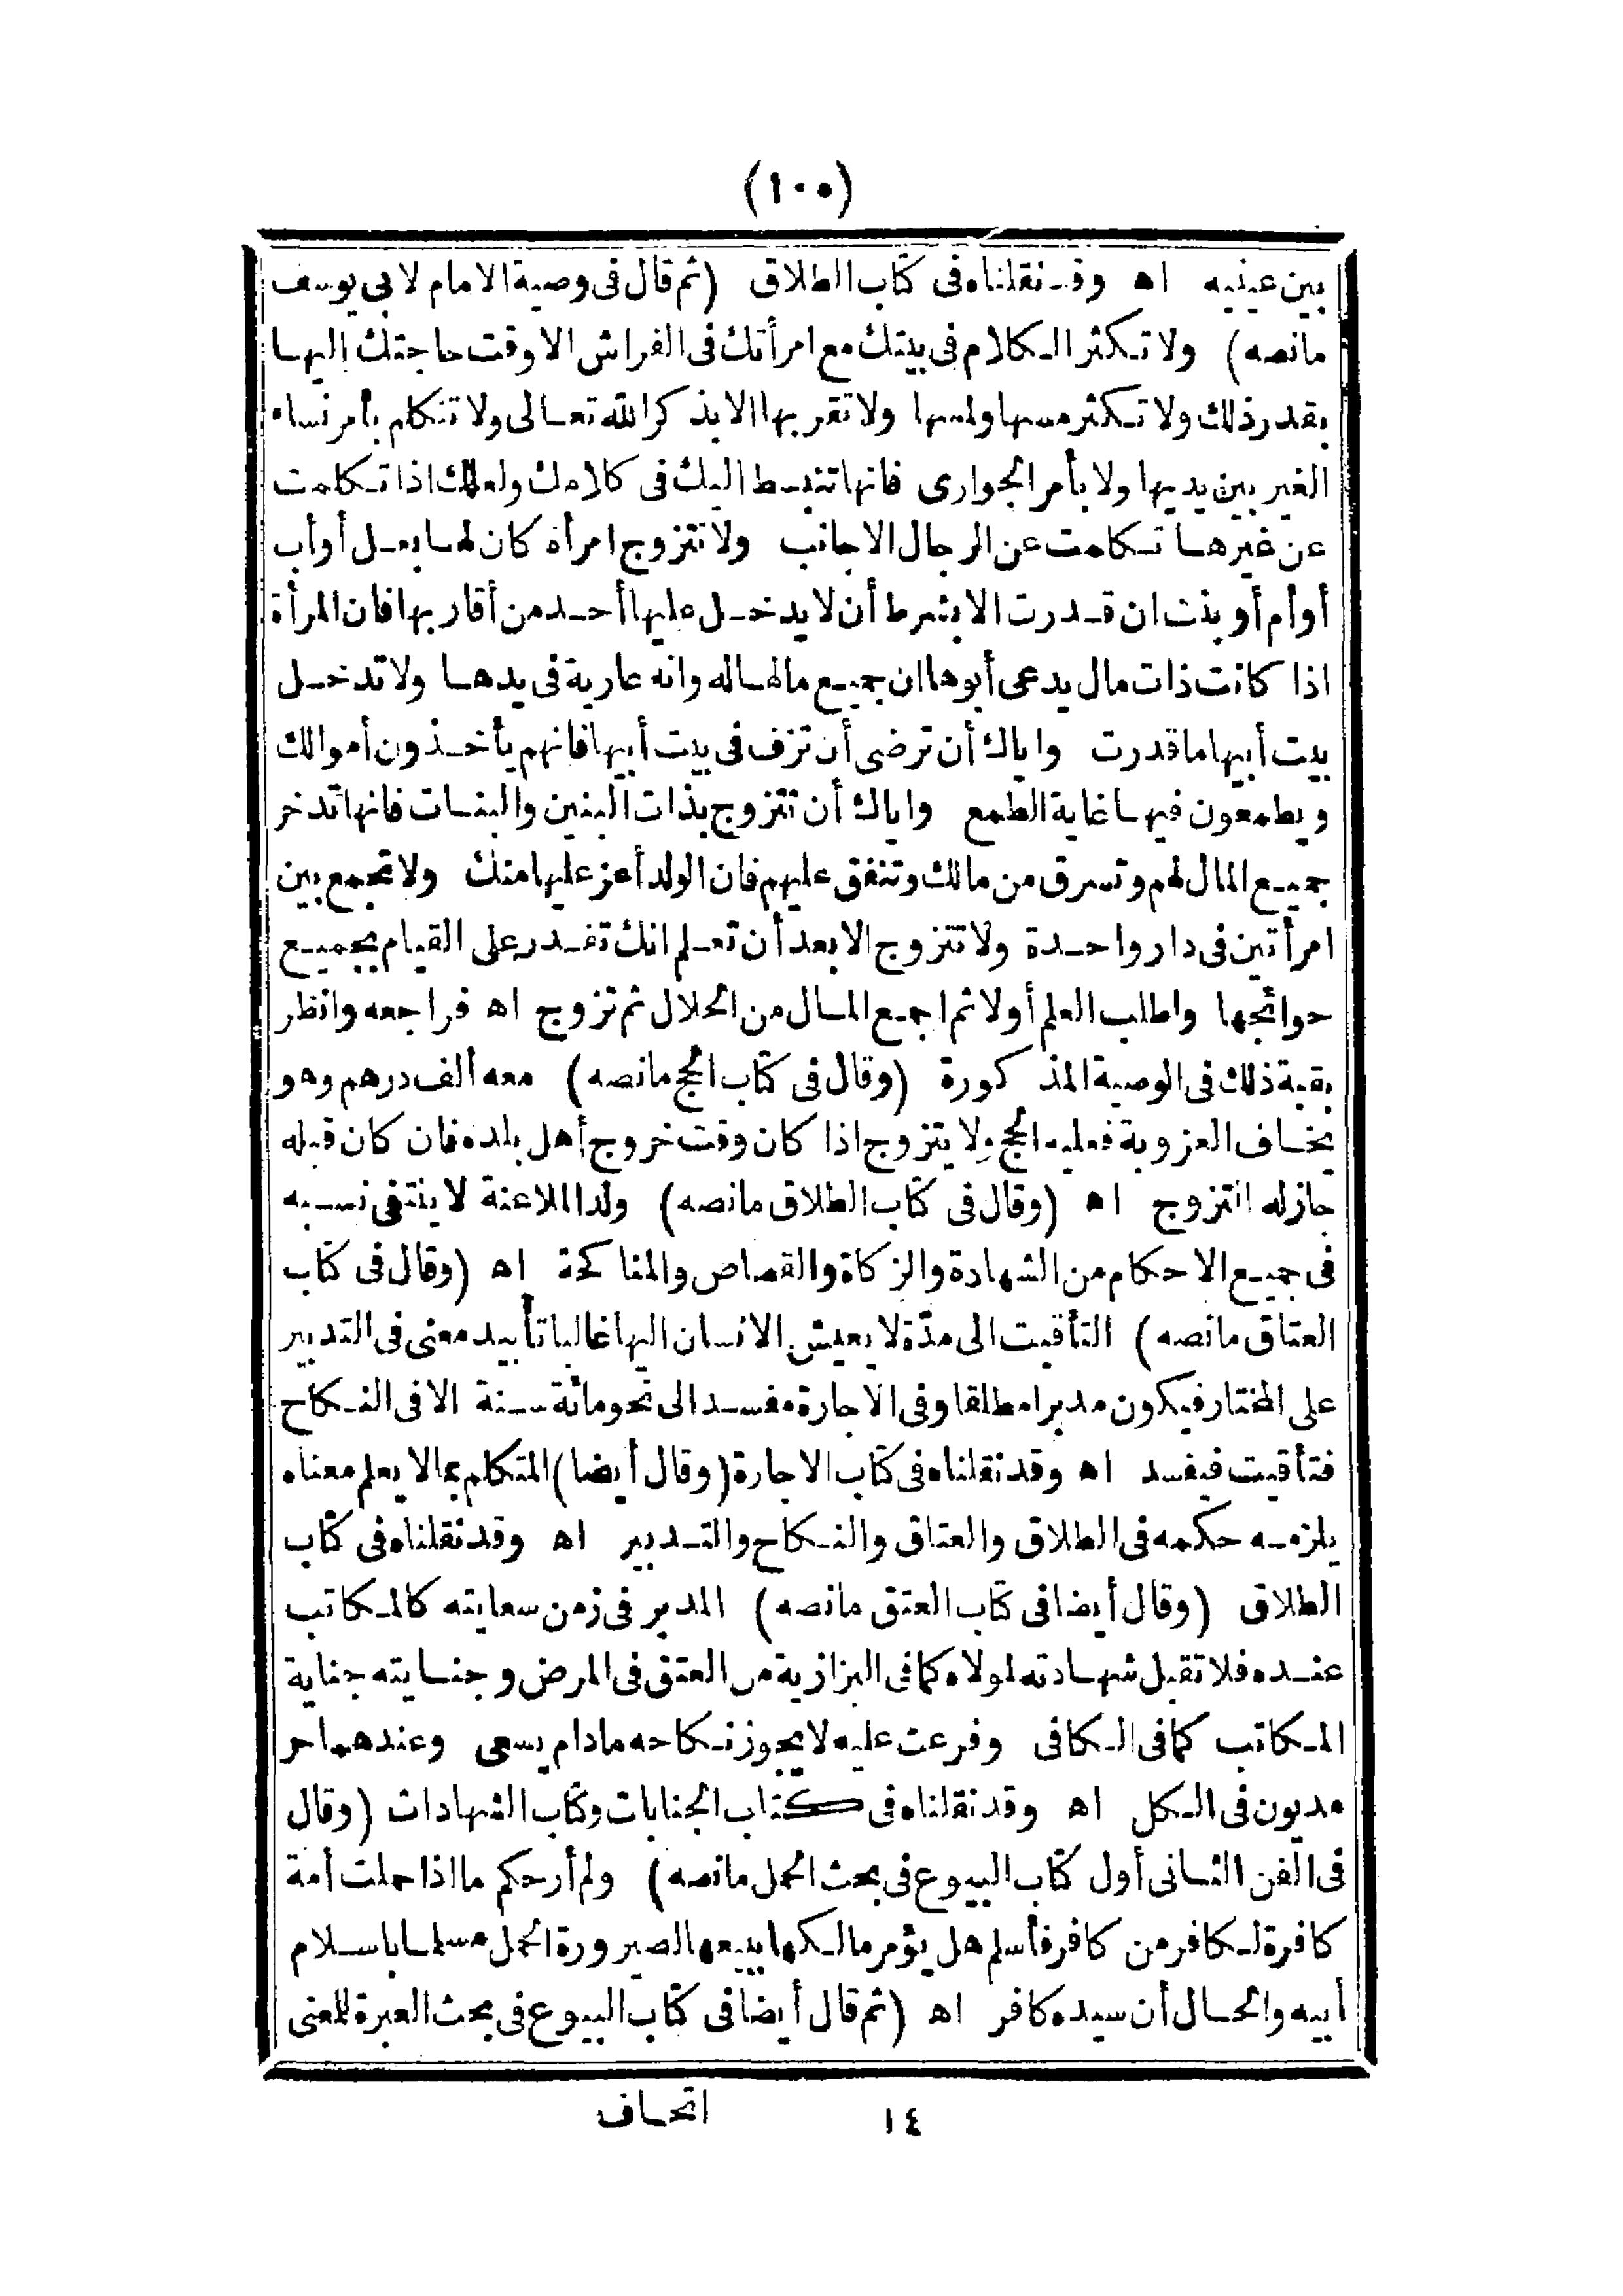 (١٠٥)
بين عينيه اه وقد نقلناه فى كتاب الطلاق (ثم قال فى وصية الامام لابى يوسف
مانصه) ولا تكثر الكلام فى بيتك مع امرأتك فى الفراش الا وقت حاجتك اليها
بقدر ذلك ولا تكثر مسها ولمسها ولا تقر بها الا بذكر الله تعالى ولا تتكلم بأمر نساء
الغير بين يديها ولا بأمر الجوارى فانها تنبسط اليك فى كلامك ولعلك اذا تكلمت
عن غيرها تكلمت عن الرجال الاجانب ولا تتزوج امرأة كان لها بعل أو أب
أو أم أو بنت ان قدرت الا بشرط أن لا يدخل عليها أحد من أقاربها فان المرأة
اذا كانت ذات مال يدعى أبوها ان جميع مالها له وانه عارية فى يدها ولا تدخل
بيت أبيها ما قدرت واياك أن ترضى أن تزف فى بيت أبيها فانهم يأخذون أموالك
ويطمعون فيها غاية الطمع واياك أن تتزوج بذات البنين والبنات فانها تدخر
جميع المال لهم وتسرق من مالك وتنفق عليهم فان الولد أعز عليها منك ولا تجمع بين
امرأتين فى دار واحدة ولا تتزوج الا بعد أن تعلم انك تقدر على القيام بجميع
حوائجها واطلب العلم أولا ثم اجمع المال من الحلال ثم تزوج اه فراجعه وانظر
بقية ذلك فى الوصية المذكورة (وقال فى كتاب الحج مانصه) معه ألف درهم وهو
يخاف العزوبة فعليه الحج ولا يتزوج اذا كان وقت خروج أهل بلده فان كان قبله
جازله التزوج اه (وقال فى كتاب الطلاق مانصه) ولد الملاعنة لا ينتفى نسبه
فى جميع الاحكام من الشهادة والزكاة والقصاص والمناكحة اه (وقال فى كتاب
العتاق مانصه) التأقيت الى مدّة لا يعيش الانسان اليها غالبا تأبيد معنى فى التدبير
على المختار فيكون مدبرا مطلقا وفى الاجارة مفسد الى نحو مائة سنة الا فى النكاح
فتأقيت فيفسد اه وقد نقلناه فى كتاب الاجارة (وقال أيضا) المتكلم بما لا يعلم معناه
يلزمه حكمه فى الطلاق والعتاق والنكاح والتدبير اه وقد نقلناه فى كتاب
الطلاق (وقال أيضا فى كتاب العتق مانصه) المدبر فى زمن سعايته كالمكاتب
عنده فلا تقبل شهادته لمولاه كما فى البزازية من العتق فى المرض وجنايته جناية
المكاتب كما فى الكافى وفرعت عليه لا يجوز نكاحه مادام يسعى وعندهما حر
مديون فى الكل اه وقد نقلناه فى كتاب الجنايات وكتاب الشهادات (وقال
فى الفن الثانى أول كتاب البيوع فى بحث الحمل مانصه) ولم أر حكم ما اذا حملت أمة
كافرة لكافر من كافر فأسلم هل يؤمر مالكها ببيعها لصيرورة الحمل مسلما باسلام
أبيه والحال أن سيده كافر اه (ثم قال أيضا فى كتاب البيوع فى بحث العبرة للمعنى
١٤ اتحاف